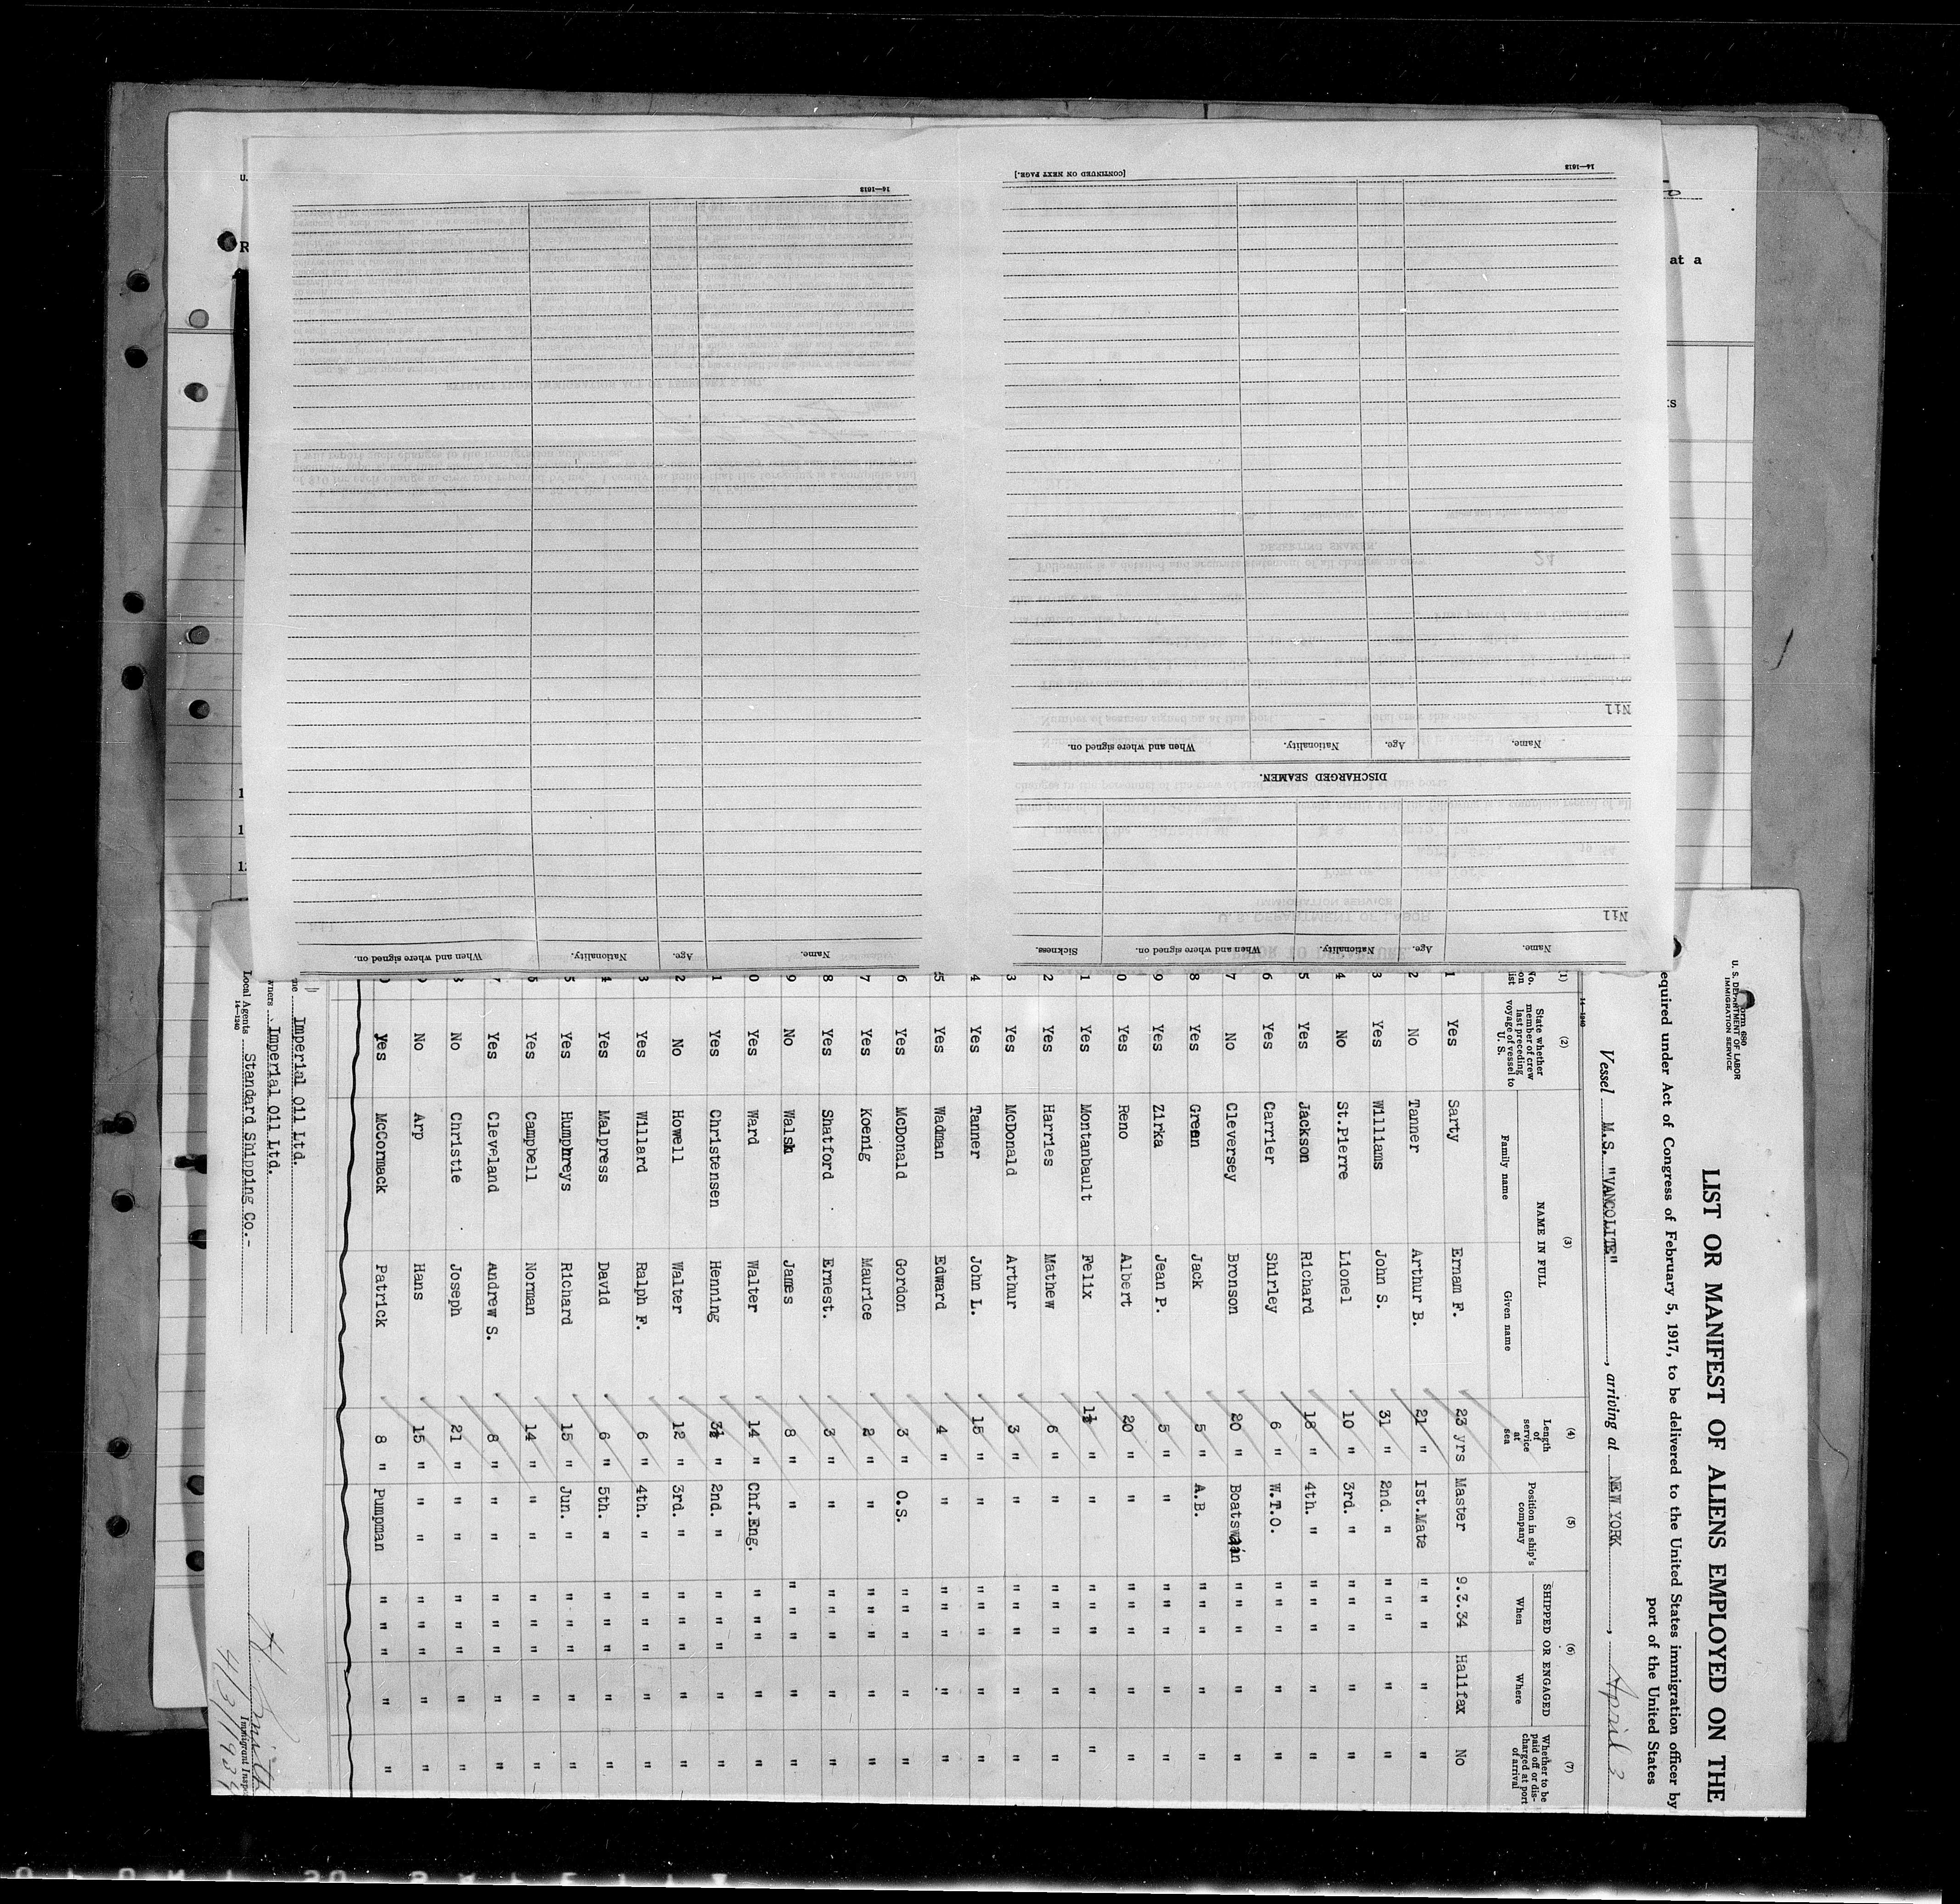 Form 680
U. S. DEPARTMENT OF LABOR
IMMIGRATION SERVICE
LIST OR MANIFEST OF ALIENS EMPLOYED ON THE
equired under Act of Congress of February 5, 1917, to be delivered to the United States immigration officer by
port of the United States
Vessel M.S. "VANCOLITE", arriving at NEW YORK, April 3
14—1240
(1) (2) (3) (4) (5) (6) (7)
No. on list
State whether member of crew last preceding voyage of vessel to U. S.
NAME IN FULL
Family name Given name
Length of service at sea
Position in ship's company
SHIPPED OR ENGAGED
When Where
Whether to be paid off or discharged at port of arrival
1 Yes Sarty Ernam F. 23 yrs Master 9.3.34 Halifax No
2 No Tanner Arthur B. 21 " Ist.Mate " " " " "
3 Yes Williams John S. 31 " 2nd. " " " " " "
4 No St.Pierre Lionel 10 " 3rd. " " " " " "
5 Yes Jackson Richard 18 " 4th. " " " " " "
6 Yes Carrier Shirley 6 " W.T.O. " " " " "
7 No Cleversey Bronson 20 " Boatswain " " " " "
8 Yes Green Jack 5 " A.B. " " " " "
9 Yes Zirka Jean P. 5 " " " " " " "
0 Yes Reno Albert 20 " " " " " " "
1 Yes Montanbault Felix 1½ " " " " " " "
2 Yes Harries Mathew 6 " " " " " " "
3 Yes McDonald Arthur 3 " " " " " " "
4 Yes Tanner John L. 15 " " " " " " "
5 Yes Wadman Edward 4 " " " " " " "
6 Yes McDonald Gordon 3 " O.S. " " " " "
7 Yes Koenig Maurice 2 " " " " " " "
8 Yes Shatford Ernest. 3 " " " " " " "
9 No Walsh James 8 " " " " " " "
0 Yes Ward Walter 14 " Chf.Eng. " " " " "
1 Yes Christensen Henning 3½ " 2nd. " " " " " "
2 No Howell Walter 12 " 3rd. " " " " " "
3 Yes Willard Ralph F. 6 " 4th. " " " " " "
4 Yes Malpress David 6 " 5th. " " " " " "
5 Yes Humphreys Richard 15 " Jun. " " " " " "
6 Yes Campbell Norman 14 " " " " " " " "
7 Yes Cleveland Andrew S. 8 " " " " " " " "
8 No Christie Joseph 21 " " " " " " " "
9 No Arp Hans 15 " " " " " " " "
Yes McCormack Patrick 8 " Pumpman " " " " "
Imperial Oil Ltd.
wners Imperial Oil Ltd.
Local Agents Standard Shipping Co.-
14—1240
4/3/1934
Immigrant Inspe
Name. Age. Nationality. When and where signed on. Sickness.
Nil
DISCHARGED SEAMEN.
Name. Age. Nationality. When and where signed on.
Nil
[CONTINUED ON NEXT PAGE.]
14—1613
Name. Age. Nationality. When and where signed on.
16—1613
U.
R
at a